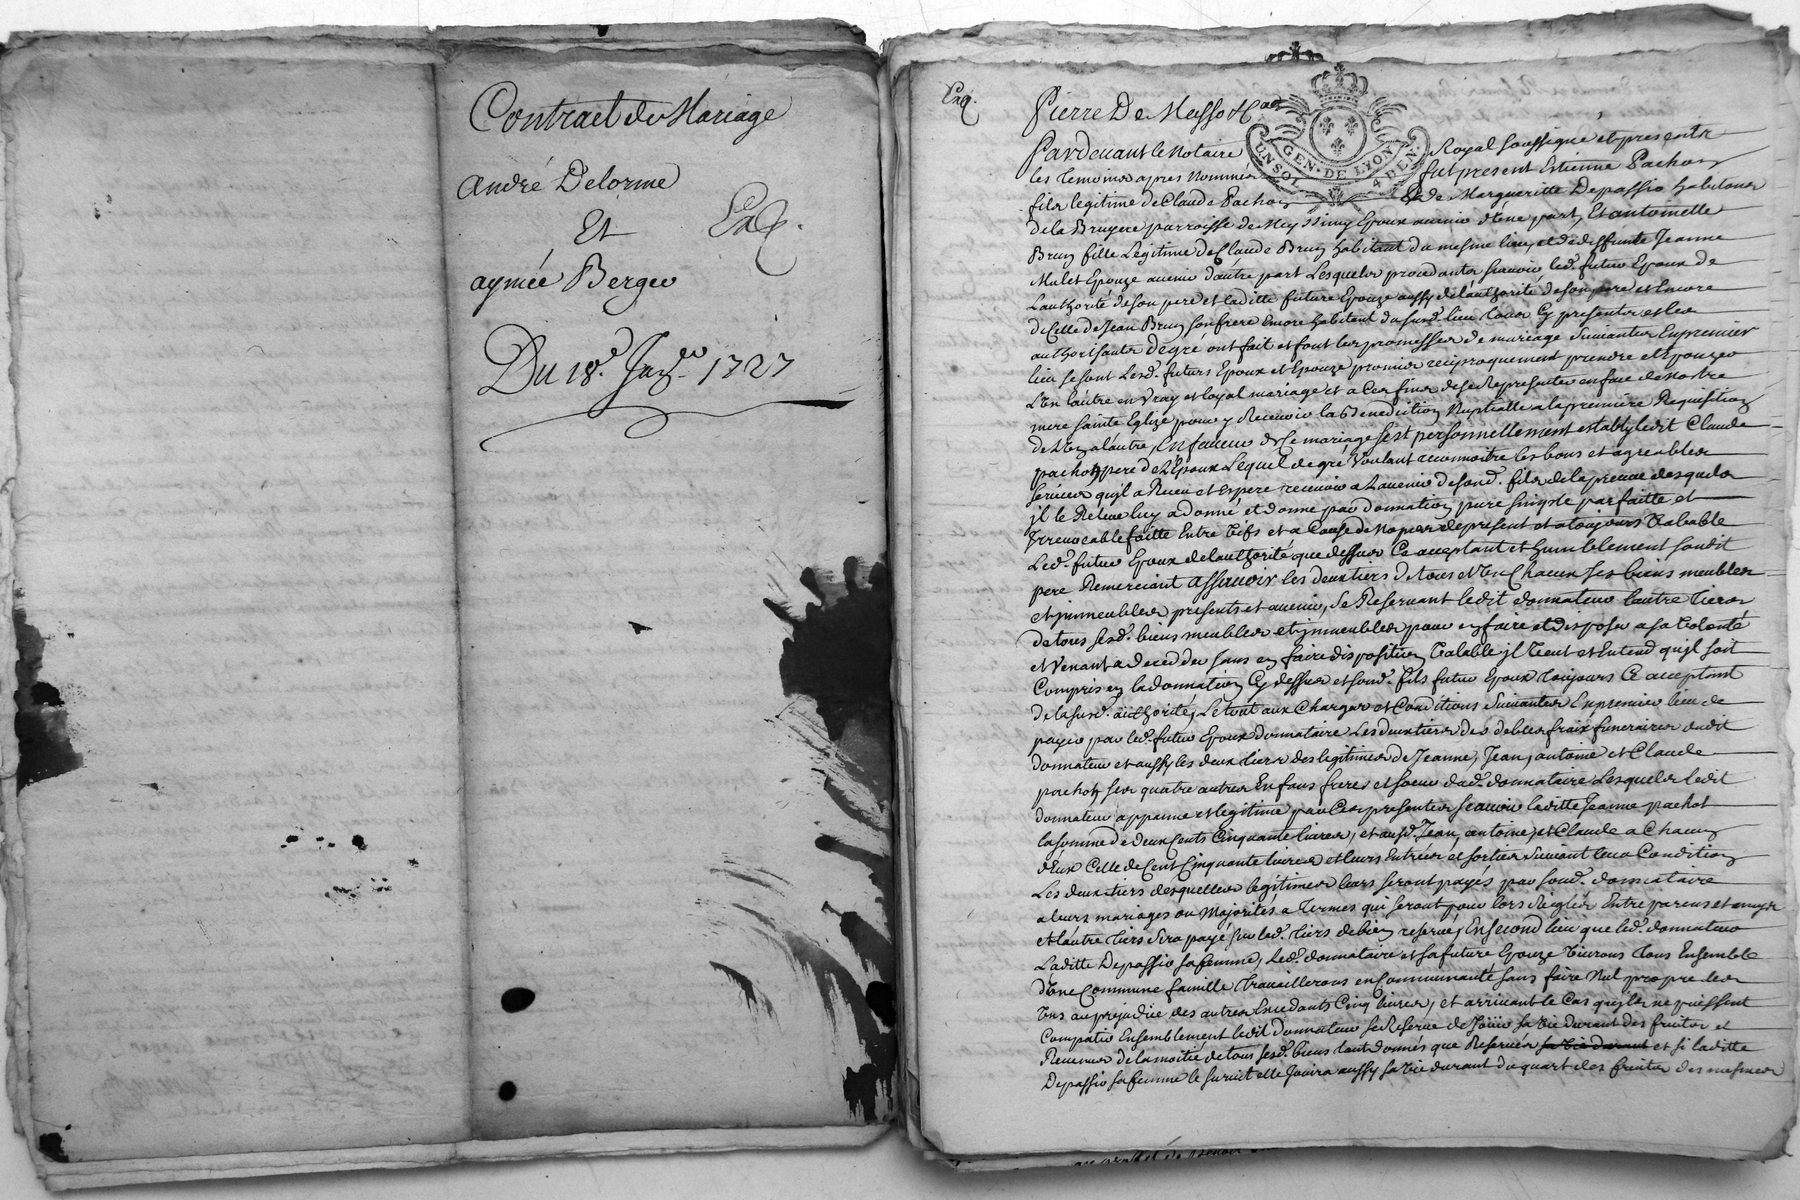 Contract de Mariage
André Delorme
Et
aymée Berger
Exq.
Du 18e. Janr. 1727
Exq.
Pierre De Masso
GEN. DE LYON
UN SOL 4 DEN.
Pardevant le Notaire Royal soussigné et presents
les temoins apres nommes fut present Estienne Pachon
fils legitime de Claude Pachon Et de Margueritte Depassio habitans
de la Bruyere parroisse de Epoux avenir d'Vne part, Et antoinette
Brun fille Legitime de Claude Brun habitant du mesme lieu et de deffunte Jeanne
Mulet Epouze avenir d'autre part Lesquels procedants sçavoir led. futur Epoux de
L'authorité de son pere et laditte future Epouze aussy de l'authorité de son pere et Encore
de Celle de Jean Brun son frere Encore habitant du susd. lieu tous Cy presents et les
authorisants de gré ont fait et font les promesses de mariage Suivantes En premier
lieu se sont Lesd. futurs Epoux et Epouze promis reciproquement prendre et Epouzer
L'Vn l'autre en Vray et loyal mariage et a Ces fins de se Representer en face de nostre
mere sainte Eglize pour y Recevoir la Benediction Nuptialle a la premiere Requisition
de L'Vn a l'autre, En faveur de Ce mariage s'est personnellement estably ledit Claude
pachon pere de L'Epoux Lequel de gré Voulant reconnoitre les bons et agreables
services qu'jl a Receu et Espere recevoir a L'avenir de sond. fils de la preuve desquels
jl le Releve luy a donné et donne par donnation pure simple parfaitte et
Irrevocable faitte Entre Vifs et a Cause de Nopces de present et a toujours Valable
Led. futur Epoux de l'authorité que dessus Ce acceptant et humblement sondit
pere Remerciant assavoir les deux tiers de tous et Vn Chacun ses biens meubles
et jmmeubles presents et avenir, Se Reservant ledit donnateur l'autre tiers
de tous sesd. biens meubles et jmmeubles pour en faire et disposer a sa Volonté
et Venant a deceder sans en faire disposition Valable jl Veut et Entend qu'jl soit
Compris en la donnation Cy dessus et sond. fils futur Epoux toujours Ce acceptant
de la susd. authorité, Le tout aux Charges et Conditions Suivantes En premier lieu de
payer par led. futur Epoux donnataire Les deux tiers des debtes fraix funeraires dudit
donnateur et aussy les deux tiers des legitimes de Jeanne, Jean, antoine et Claude
pachon ses quatre autres Enfans freres et soeur dud. donnataire Lesquels ledit
donnateur appanne et legitime par Ces presentes sçavoir laditte Jeanne pachot
la somme de deux Cents Cinquante livres, et ausd. Jean, antoine, et Claude a Chacun
d'Eux Celle de Cent Cinquante livres et leurs Entrées et sorties Suivant leur Condition
Les deux tiers desquelles legitimes leurs seront payés par sond. donnataire
a leurs mariages ou Majorités a termes qui seront pour lors Reglés Entre parens et amys
et l'autre tiers sera payé sur led. tiers de bien reservé, En second lieu que led. donnateur
Laditte Depassio sa femme, Led. donnataire et sa future Epouze Vivrons tous Ensemble
d'Vne Commune famille travaillerons en Communauté sans faire Nul propre les
Vns au prejudice des autres Excedants Cinq livres, et arrivant le Cas qu'jls ne puissent
Compatir Ensemblement ledit donnateur se Reserve de Joüir sa Vie durant des fruits et
Revenus de la moitié de tous sesd. biens tant donnés que Reservés sa Vie durant et si laditte
Depassio sa femme le survit elle Jouira aussy sa Vie durant du quart des fruits des mesmes